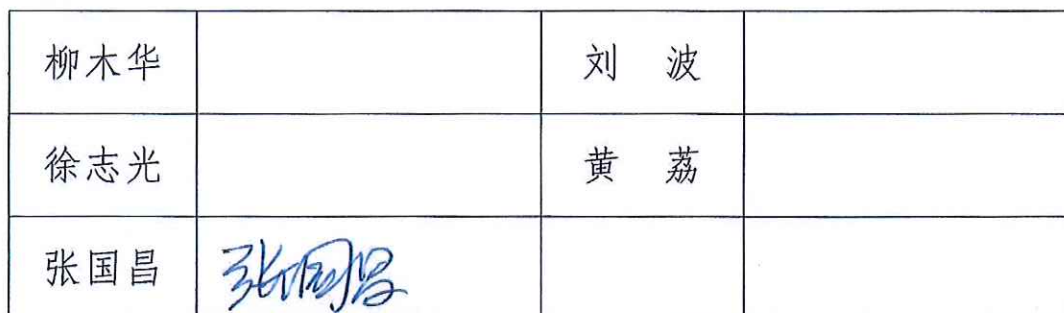 柳木华 刘 波
徐志光 黄 荔
张国昌 张国昌